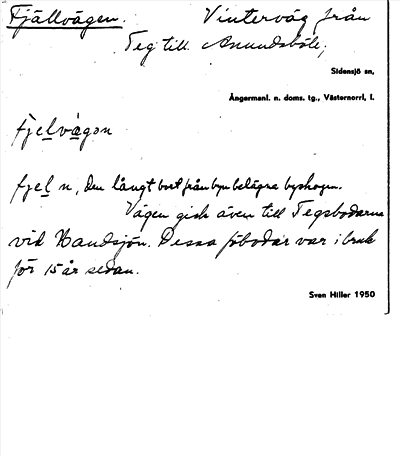 Fjällvägen. Vinterväg från
Teg till Anundsböle,
Sidensjö sn,
Ångermanl. n. doms. tg., Västernorrl, l.
fjelvägen
fjel n, den långt bort från byn belägna byskogen.
Vägen gick även till Tegsbodarna
vid Handsjön. Dessa fäbodar var i bruk
för 15 år sedan.
Sven Hiller 1950